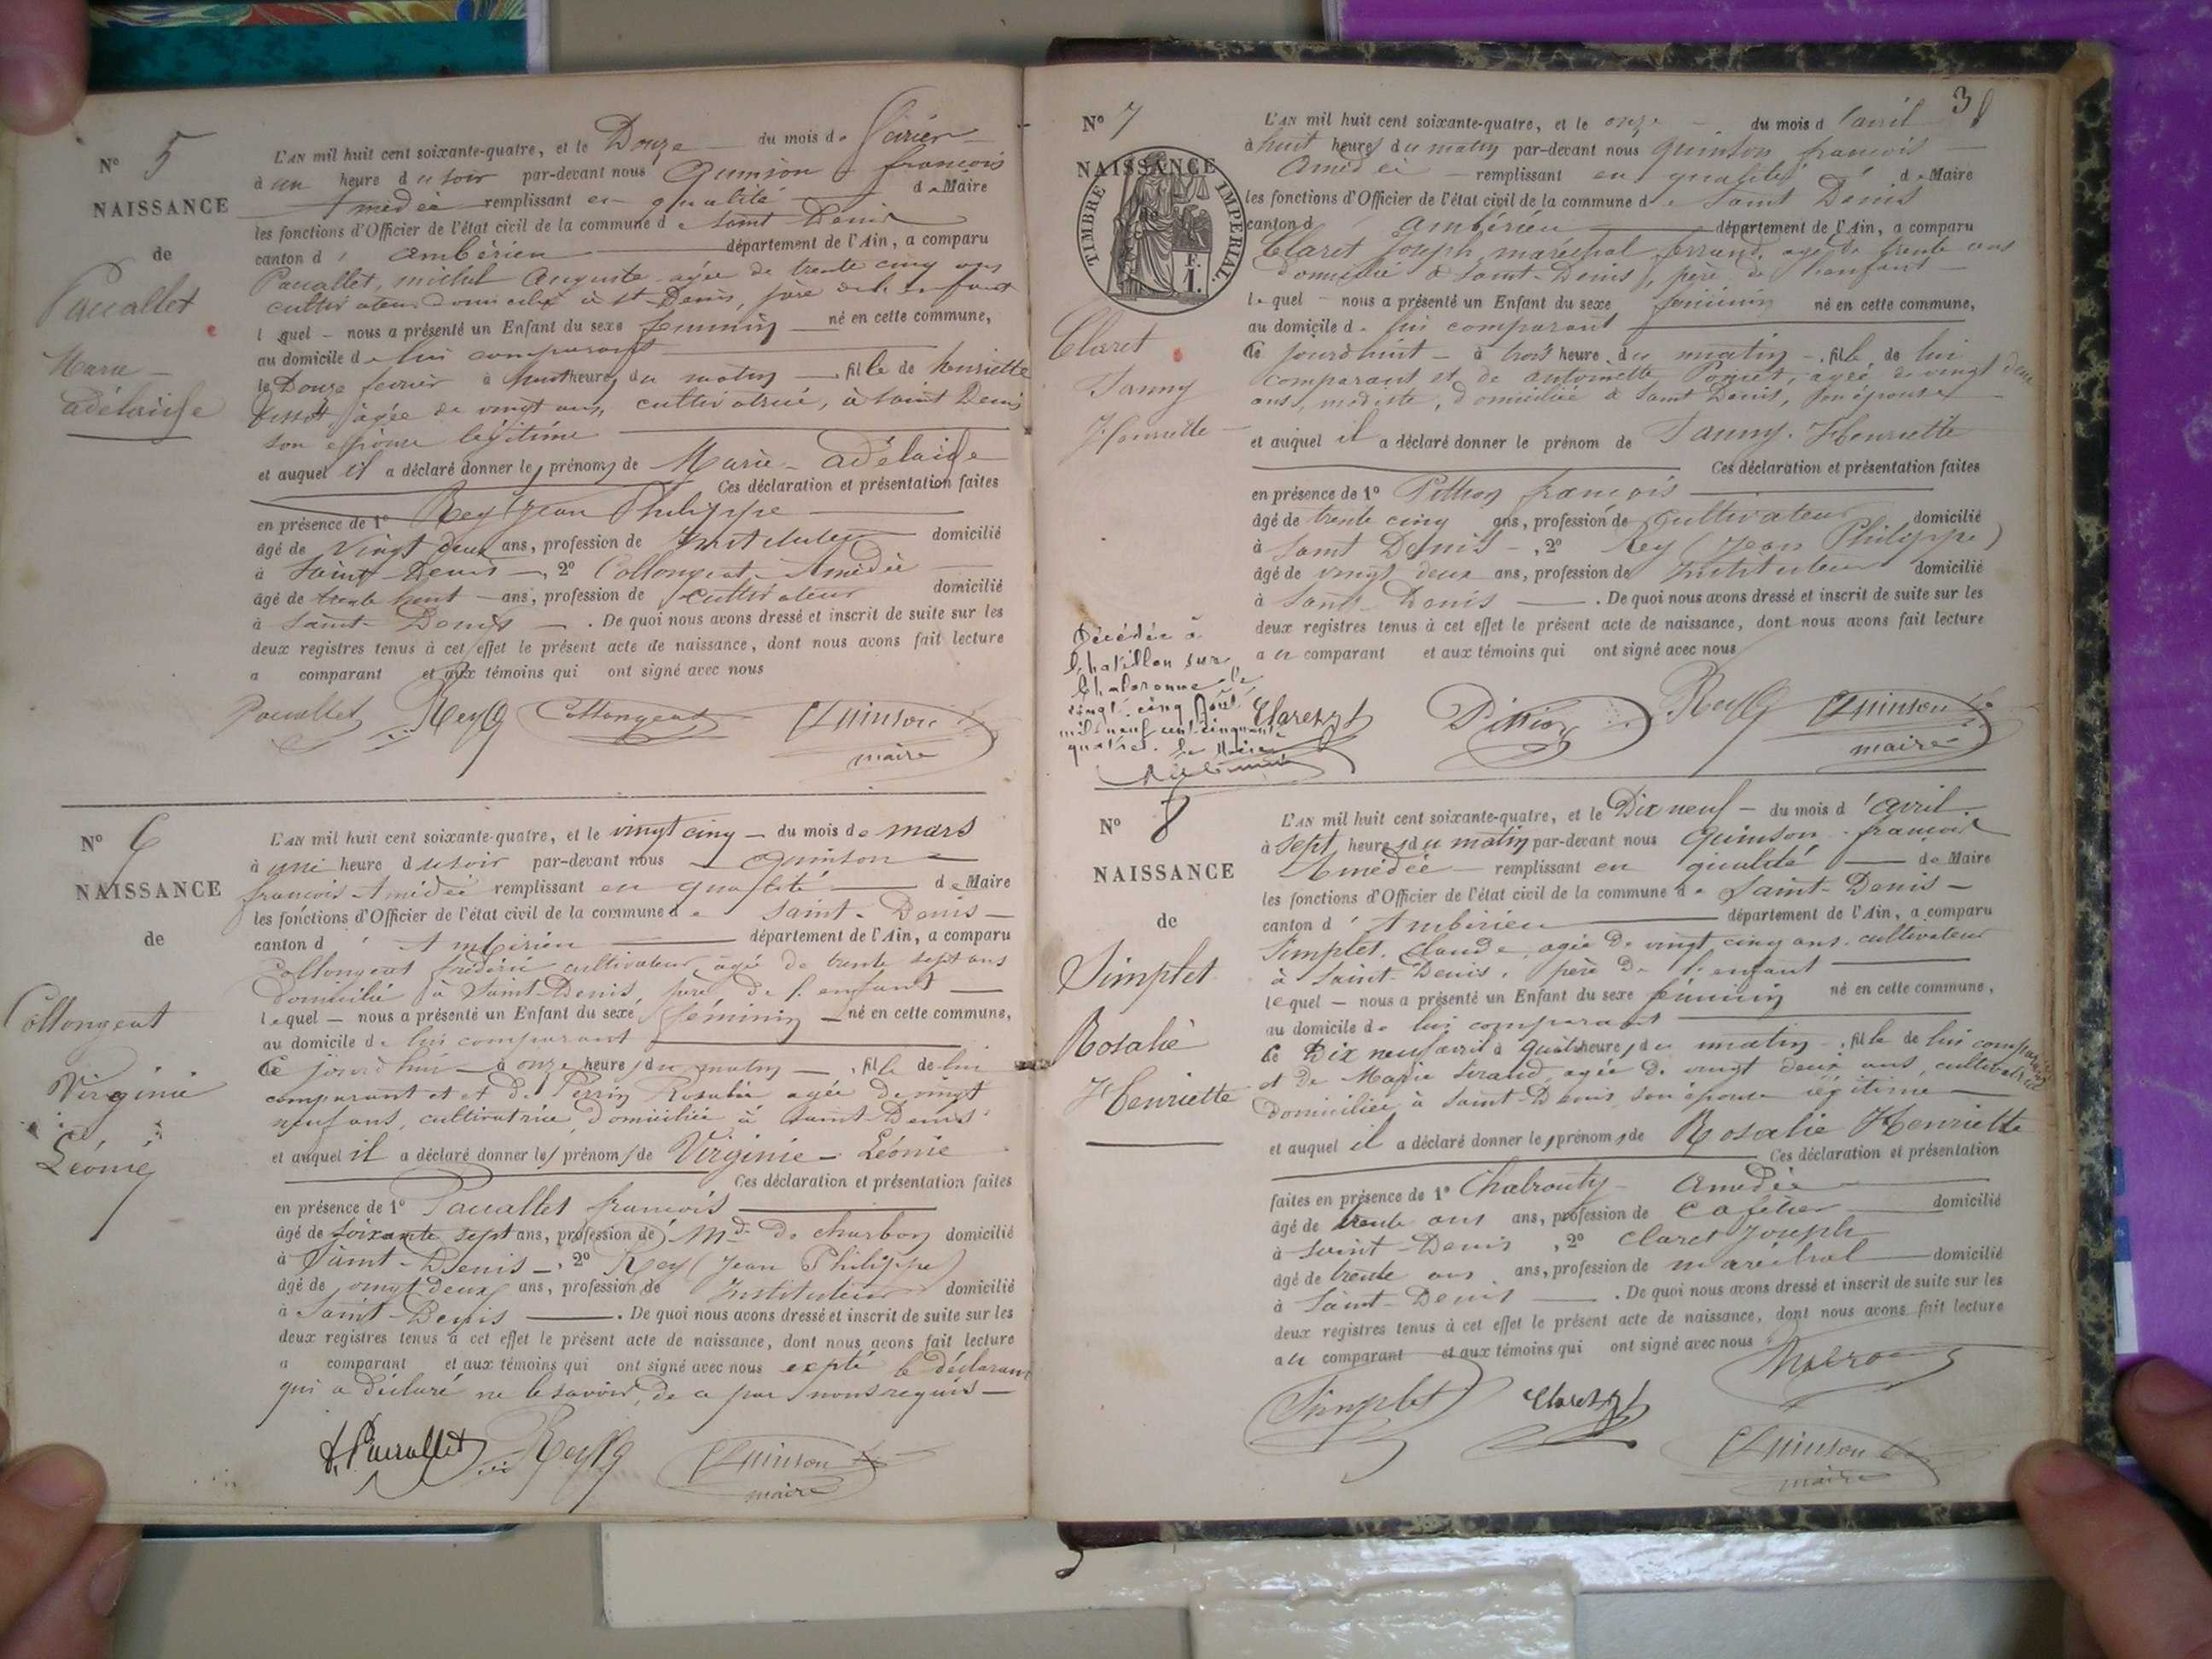 Nº 5
NAISSANCE
de
Pacallet
Marie
adélaïde
L'AN mil huit cent soixante-quatre, et le Douze du mois de février
à un heure du soir par-devant nous Quinson françois
Amédée remplissant en qualité de Maire
les fonctions d'Officier de l'état civil de la commune de Saint Denis
canton d' Ambérieu département de l'Ain, a comparu
Pacallet, michel Auguste agée de trente cinq ans
cultivateur domicilié à St Denis, père de l'enfant
lequel nous a présenté un Enfant du sexe féminin né en cette commune,
au domicile de lui comparant
le Douze fevrier à huit heures du matin fille de henriette
agée de vingt ans, cultivatrice, à Saint Denis
son épouse légitime
et auquel il a déclaré donner les prénoms de Marie - adélaïde
Ces déclaration et présentation faites
en présence de 1º Rey Jean Philippe
âgé de vingt deux ans, profession de Instituteur domicilié
à Saint-Denis, 2º Collongeat Amédée
âgé de trente huit ans, profession de cultivateur domicilié
à Saint-Denis. De quoi nous avons dressé et inscrit de suite sur les
deux registres tenus à cet effet le présent acte de naissance, dont nous avons fait lecture
a comparant et aux témoins qui ont signé avec nous
Pacallet Rey Collongeat Quinson
maire
Nº 6
NAISSANCE
de
Collongeat
Virginie
Léonie
L'AN mil huit cent soixante-quatre, et le vingt cinq du mois de mars
à une heure du soir par-devant nous Quinson
françois Amédée remplissant en qualité de Maire
les fonctions d'Officier de l'état civil de la commune de Saint-Denis
canton d' Ambérieu département de l'Ain, a comparu
Collongeat frédéric cultivateur agée de trente sept ans
domicilié à Saint-Denis, père de l'enfant
lequel nous a présenté un Enfant du sexe féminin né en cette commune,
au domicile de lui comparant
Ce jourd'hui à onze heures du matin, fille de lui
comparant et et de Perrin Rosalie agée de vingt
neuf ans, cultivatrice, domiciliée à Saint-Denis
et auquel il a déclaré donner les prénoms de Virginie - Léonie
Ces déclaration et présentation faites
en présence de 1º Pacallet françois
âgé de soixante sept ans, profession de Md de charbon domicilié
à Saint-Denis, 2º Rey (Jean Philippe)
âgé de vingt deux ans, profession de Instituteur domicilié
à Saint-Denis. De quoi nous avons dressé et inscrit de suite sur les
deux registres tenus à cet effet le présent acte de naissance, dont nous avons fait lecture
a comparant et aux témoins qui ont signé avec nous expté le déclarant
qui a déclaré ne le savoir de a par nous requis
f. Pacallet Rey Quinson
maire
3
Nº 7
NAISSANCE
TIMBRE IMPERIAL.
F.
1.
de
Claret
Fanny
Henriette
L'AN mil huit cent soixante-quatre, et le onze du mois d' avril
à huit heures du matin par-devant nous Quinson françois
Amédée remplissant en qualité de Maire
les fonctions d'Officier de l'état civil de la commune de Saint Denis
canton d' Ambérieu département de l'Ain, a comparu
Claret Joseph, maréchal ferrand, agé de trente ans
domicilié à Saint Denis, père de l'enfant
lequel nous a présenté un Enfant du sexe féminin né en cette commune,
au domicile de lui comparant
Ce jourd'hui à trois heure du matin, fille de lui
comparant et de antoinette agée de vingt deux
ans, modiste, domiciliée à Saint Denis, son épouse
et auquel il a déclaré donner le prénom de Fanny Henriette
Ces déclaration et présentation faites
en présence de 1º Pittion françois
âgé de trente cinq ans, profession de cultivateur domicilié
à Saint Denis, 2º Rey (Jean Philippe)
âgé de vingt deux ans, profession de Instituteur domicilié
à Saint-Denis. De quoi nous avons dressé et inscrit de suite sur les
deux registres tenus à cet effet le présent acte de naissance, dont nous avons fait lecture
au comparant et aux témoins qui ont signé avec nous
Décédée à
Chatillon sur
Chalaronne le
vingt cinq Août
mil neuf cent cinquante
quatre. Le Maire
Claret Pittion Rey Quinson
maire
Nº 8
NAISSANCE
de
Simplet
Rosalie
Henriette
L'AN mil huit cent soixante-quatre, et le Dix neuf du mois d' avril
à sept heures du matin par-devant nous Quinson françois
Amédée remplissant en qualité de Maire
les fonctions d'Officier de l'état civil de la commune de Saint-Denis
canton d' Ambérieu département de l'Ain, a comparu
Simplet Claude, agée de vingt cinq ans cultivateur
à Saint-Denis, père de l'enfant
lequel nous a présenté un Enfant du sexe féminin né en cette commune,
au domicile de lui comparant
Ce Dix neuf avril à quatre heures du matin, fille de lui comparant
et de Marie agée de vingt deux ans, cultivatrice
domiciliée à Saint-Denis son épouse légitime
et auquel il a déclaré donner les prénoms de Rosalie Henriette
Ces déclaration et présentation
faites en présence de 1º Amédée
âgé de trente ans ans, profession de Cafetier domicilié
à Saint-Denis, 2º Claret Joseph
âgé de trente ans ans, profession de maréchal domicilié
à Saint-Denis. De quoi nous avons dressé et inscrit de suite sur les
deux registres tenus à cet effet le présent acte de naissance, dont nous avons fait lecture
au comparant et aux témoins qui ont signé avec nous
Simplet Claret
Quinson
maire